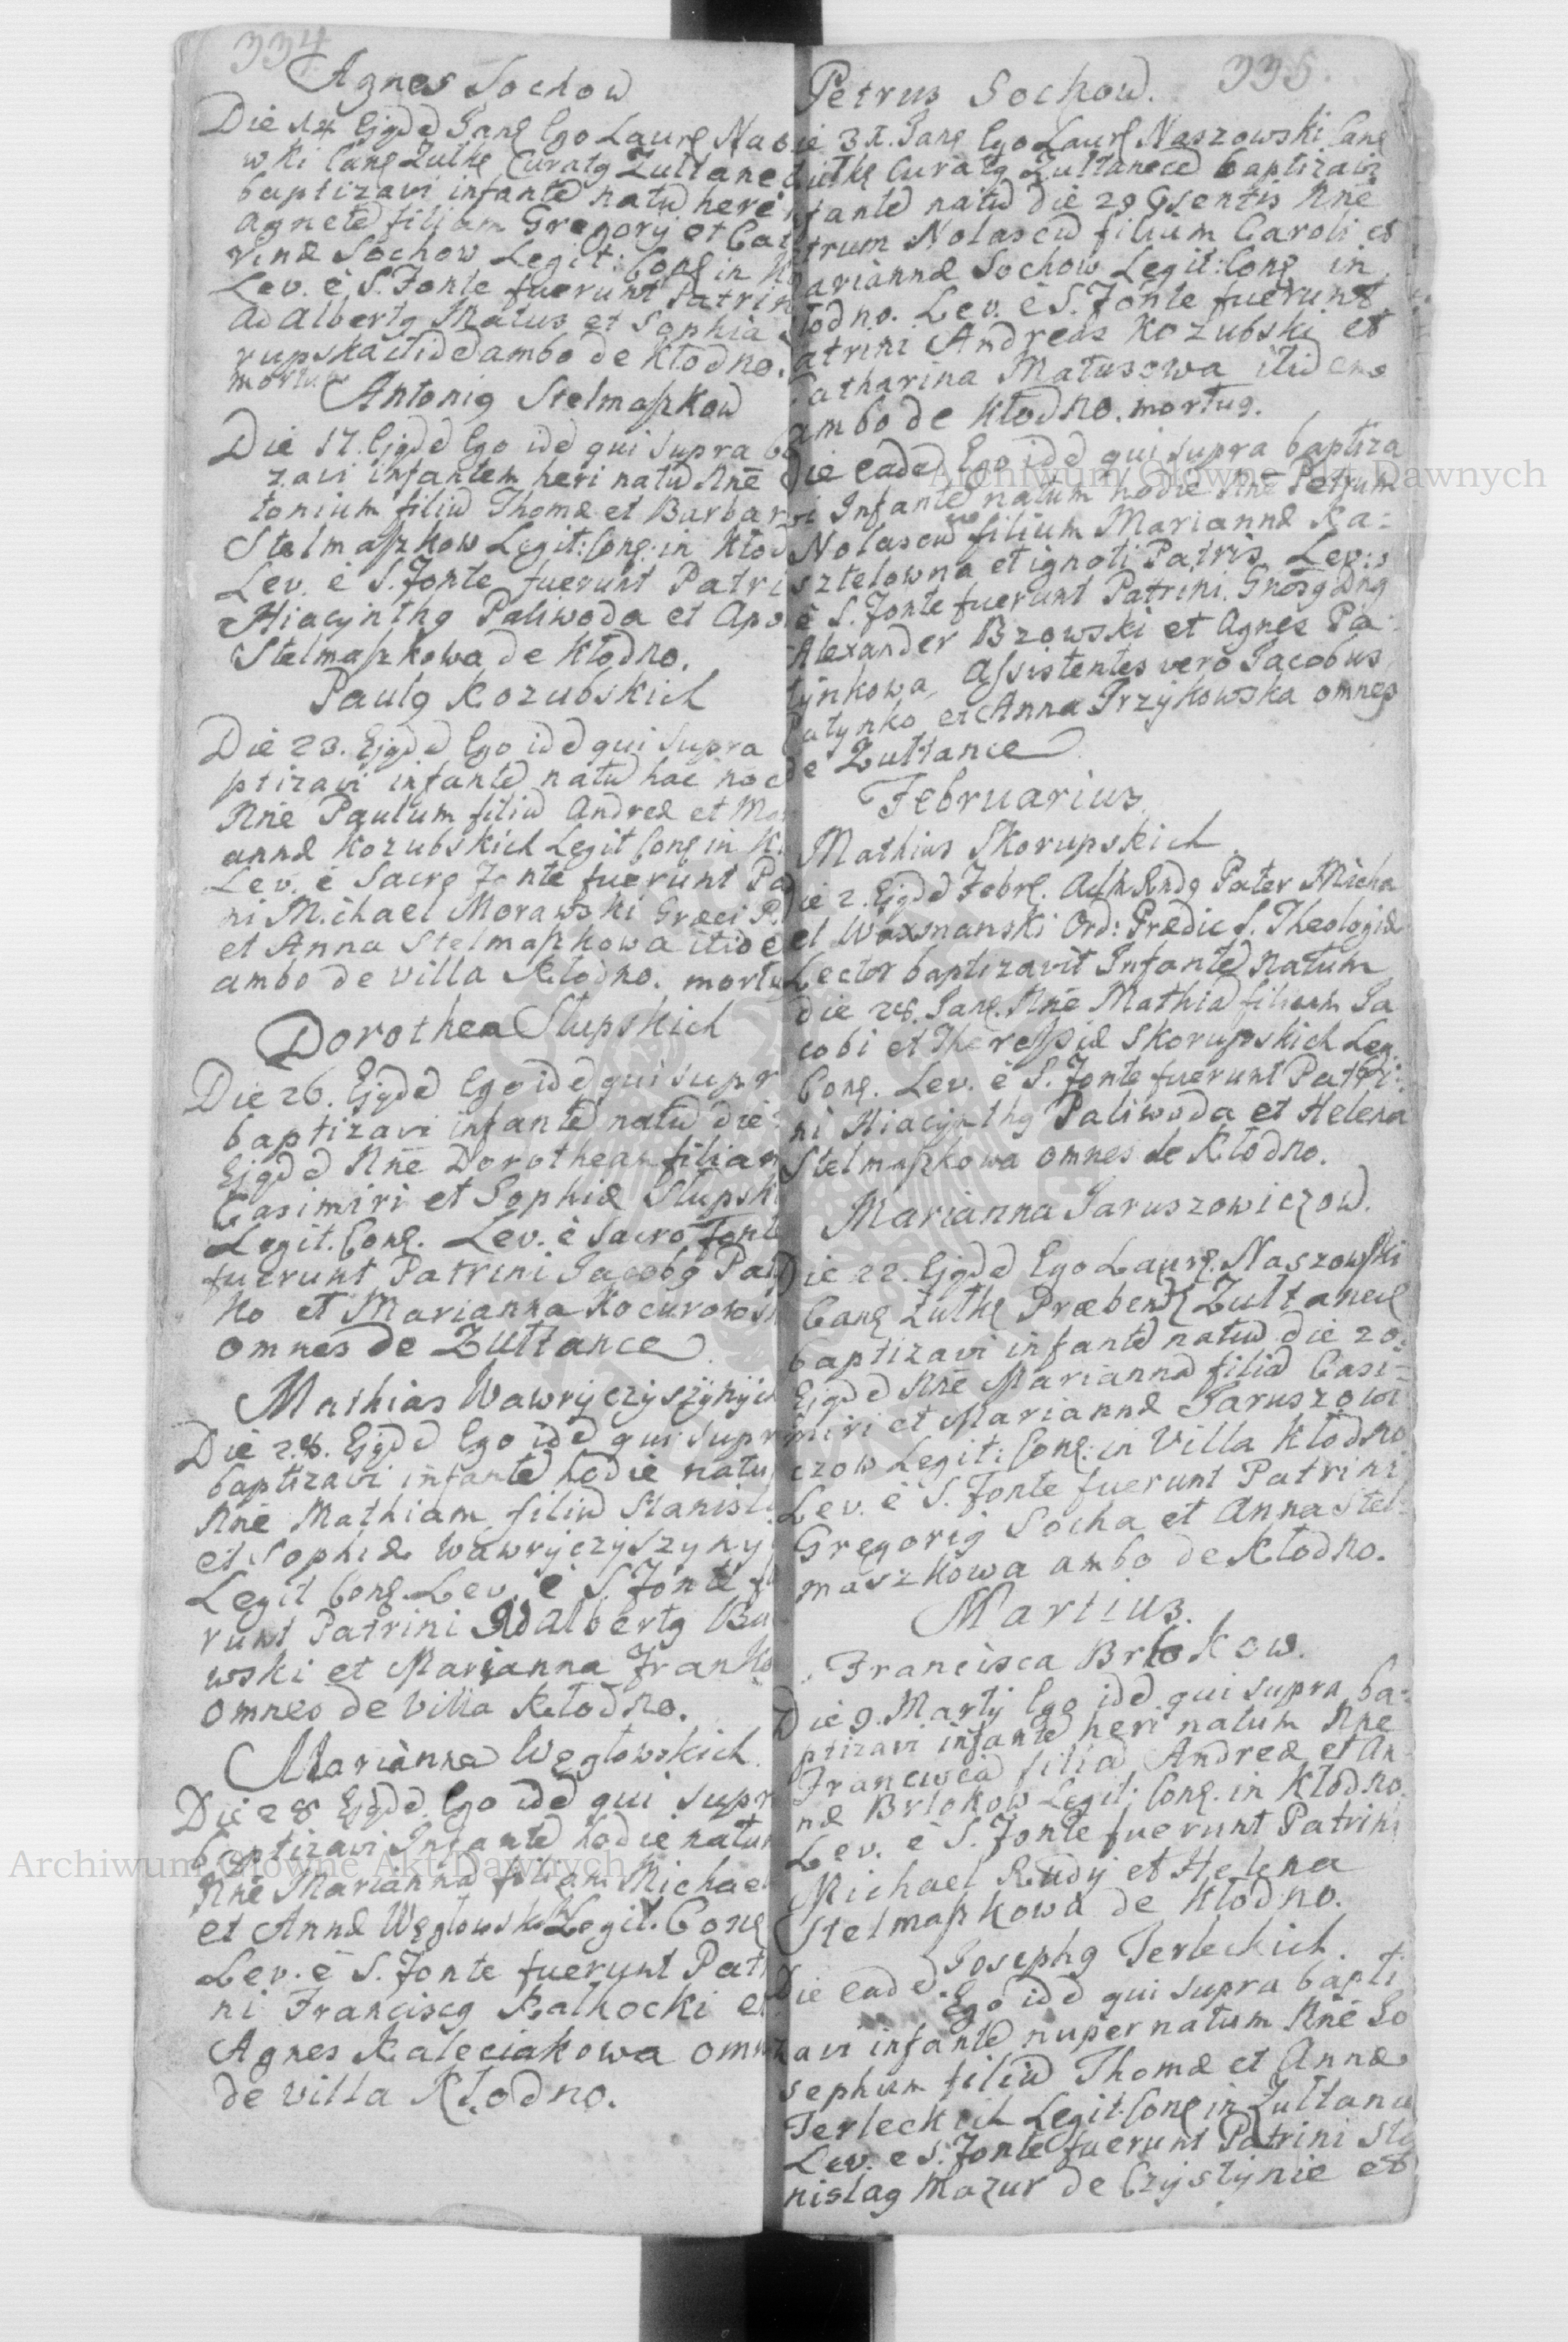 334
Agnes Sochow
Die 14 Ejqdd Janę Ego Laurę Nas
wki Canę Zulkę Curatq Zultane
baptizavi infantē natū heri
Agnetē filiam Gregorij et Cat
rinæ Sochow Legit: Conę in Kł
Lev. è S. Fonte fuerunt Patrin
Adalbertq Matus et Sophia
rupska itidē ambo de Kłodno.
mortua
Antoniq Stelmaszkow
Die 17. Ejqdd Ego idē qui supra ba
zavi infantem heri natū Nnē
tonium filiū Thomæ et Barbar
Stelmaszkow Legit: Conę: in Kłod
Lev. è S. Fonte fuerunt Patri
Hiacijnthq Paliwoda et Apo
Stelmaszkowa de Kłodno.
Paulq Kozubskich
Die 23. Ejqdd Ego idē qui supra
ptizavi infantē natū hac noc
Nnē Paulum filiū Andreæ et Mar
annæ Kozubskich Legit Conę in Kł
Lev. è Sacrę Fonte fuerunt Pa
ni Michael Morawski Græci R.
et Anna Stelmaszkowa itidē
ambo de villa Kłodno. mortu
Dorothea Slupskich
Die 26. Ejqdd Ego idē qui supr
baptizavi infantē natū die
Ejqdd Nnē Dorotheam filiam
Casimiri et Sophiæ Slupski
Legit. Conę. Lev. è Sacro Fonte
fuerunt Patrini Jacobq Pat
ko et Marianna Kocurows
omnes de Zultance
Mathias Wawryczyszynyc
Die 28. Ejqdd Ego idē qui supr
baptizavi infantē hodie natu
Nnē Mathiam filiū Stanisl
et Sophiæ Wawryczyszyny
Legit Conę Lev. è S. Fonte fu
runt Patrini Adalbertq Bu
wski et Marianna Franko
omnes de Villa Kłodno.
Marianna Węglowskich
Die 28 Ejqdd Ego idē qui supr
baptizavi Infantē hodie natu
Nnē Mariannā filiam Michael
et Annæ Węglowsk Legit. Conę
Lev. è S. Fonte fuerunt Pat
ni Franciscq Kalhocki et
Agnes Kaleciakowa omn
de villa Kłodno.
335.
Petrus Sochow.
ie 31. Janę Ego Laurę Naszowski Canę
Zulkę Curatq Zultanecē baptizavi
nfantē natū die 29 Psentis Nnē
trum Nolascū filium Caroli et
ariannæ Sochow Legit: Conę in
łodno. Lev. è S. Fonte fuerunt
atrini Andreas Kozubski et
Catharina Matusowa itidem
ambo de Kłodno. mortuq.
Die Eadē Ego idē qui supra baptiza
vi Infantē natum hodie Nnē Petrum
Nolascū filium Mariannæ Ka=
sztelowna et ignoti Patris Lev:
è S. Fonte fuerunt Patrini. Gnosq Dnq
Alexander Bzowski et Agnes Pa
tynkowa, Assistentes vero Jacobus
Patynko et Anna Trzykowska omnes
de Zultance
Februarius
Mathias Skorupskich
Die 2. Ejqdd Febrę. Adm Rndq Pater Micha
el Waxmanski Ord: Prædic S. Theologiæ
Lector baptizavit Infantē natum
die 28. Janę. Nnē Mathiā filium Ja
cobi et Theressiæ Skorupskich Leg.
Conę. Lev. è S. Fonte fuerunt Patri=
ni Hiacijnthq Paliwoda et Helena
Stelmaszkowa omnes de Kłodno.
Marianna Jaruszowiczow.
Die 22. Ejqdd Ego Laurę. Naszowski
Canę Zulkę Præbendę Zultanecę
baptizavi infantē natū die 20.
Ejqdd Nnē Mariannā filiā Casi=
miri et Mariannæ Jaruszowi
czow Legit: Conę: in Villa Kłodno
Lev. è S. Fonte fuerunt Patrini
Gregoriq Socha et Anna Stel=
maszkowa ambo de Kłodno.
Martius.
Francisca Brlokow.
Die 9. Martij Ego idē qui supra ba=
ptizavi infantē heri natum Nnē
Franciscā filiā Andreæ et An=
næ Brlokow Legit: Conę. in Kłodno.
Lev. è S. Fonte fuerunt Patrini
Michael Rudij et Helena
Stelmaszkowa de Kłodno.
Josephq Terleckich.
Die Eadē. Ego idē qui supra bapti
zavi infantē nuper natum Nnē Jo
sephum filiū Thomæ et Annæ
Terleckich Legit. Conę in Zultanc
Lev. è S. Fonte fuerunt Patrini Sta
nislaq Mazur de Czystynie et
Archiwum Główne Akt Dawnych
Archiwum Główne Akt Dawnych